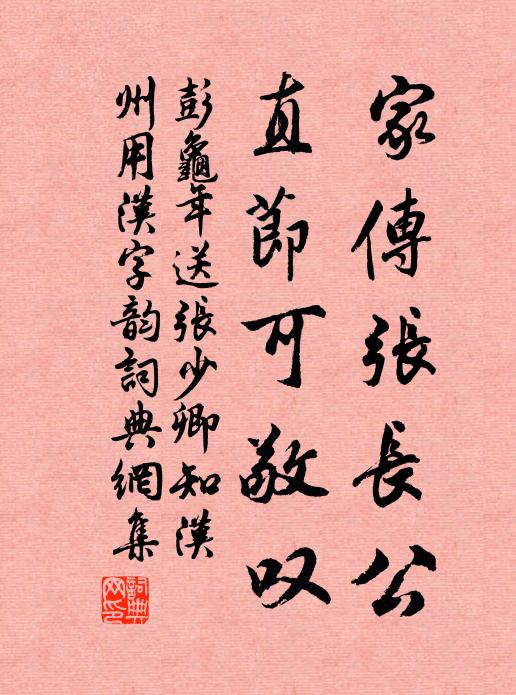 家傳張長公
直節可敬叹
彭龜年送張少卿知漢
州用漢字韵詞典網集
詞典网印